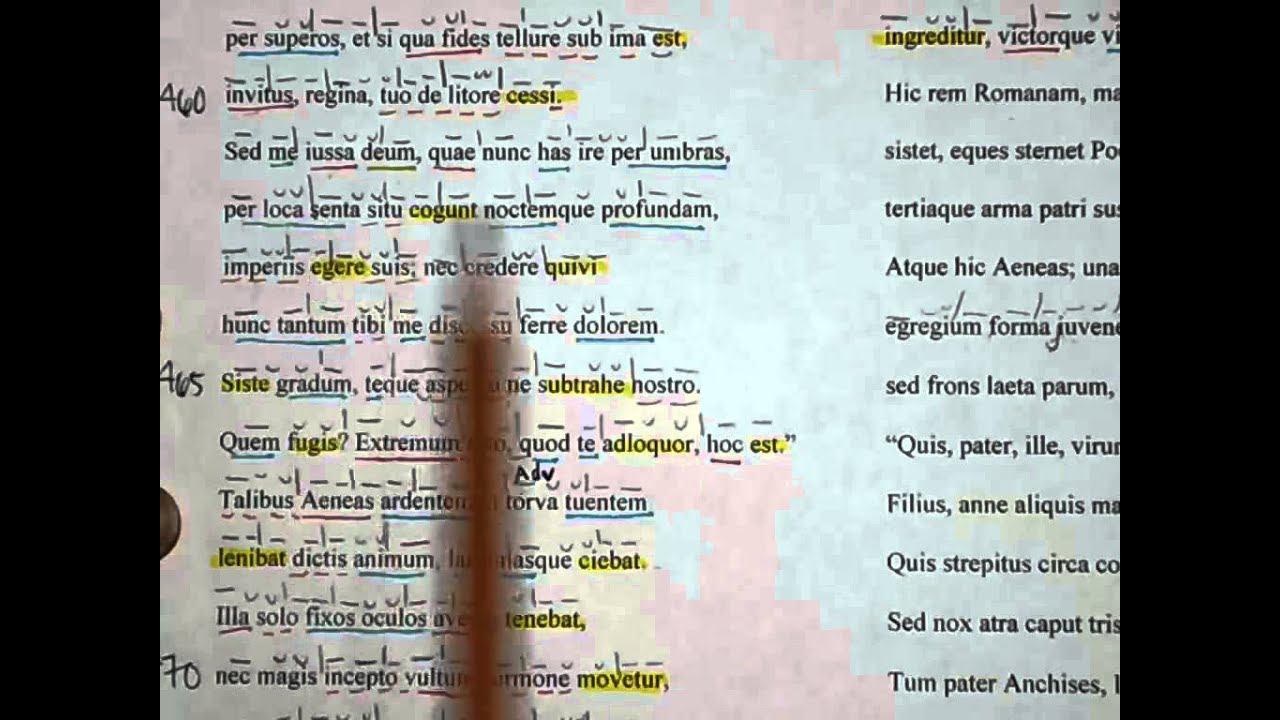 per superos, et si qua fides tellure sub ima est,
460
invitus, regina, tuo de litore cessi.
Sed me iussa deum, quae nunc has ire per umbras,
per loca senta situ cogunt noctemque profundam,
imperiis egere suis; nec credere quivi
hunc tantum tibi me su ferre dolorem.
465
Siste gradum, teque ne subtrahe nostro.
Quem fugis? Extremum quod te adloquor, hoc est.”
Adv
Talibus Aeneas torva tuentem
lenibat dictis animum, ciebat.
Illa solo fixos oculos tenebat,
70
nec magis incepto movetur,
ingreditur, victorque
Hic rem Romanam,
sistet, eques sternet
tertiaque arma patri
Atque hic Aeneas; una
egregium forma
sed frons laeta parum,
“Quis, pater, ille,
Filius, anne aliquis
Quis strepitus circa
Sed nox atra caput
Tum pater Anchises,